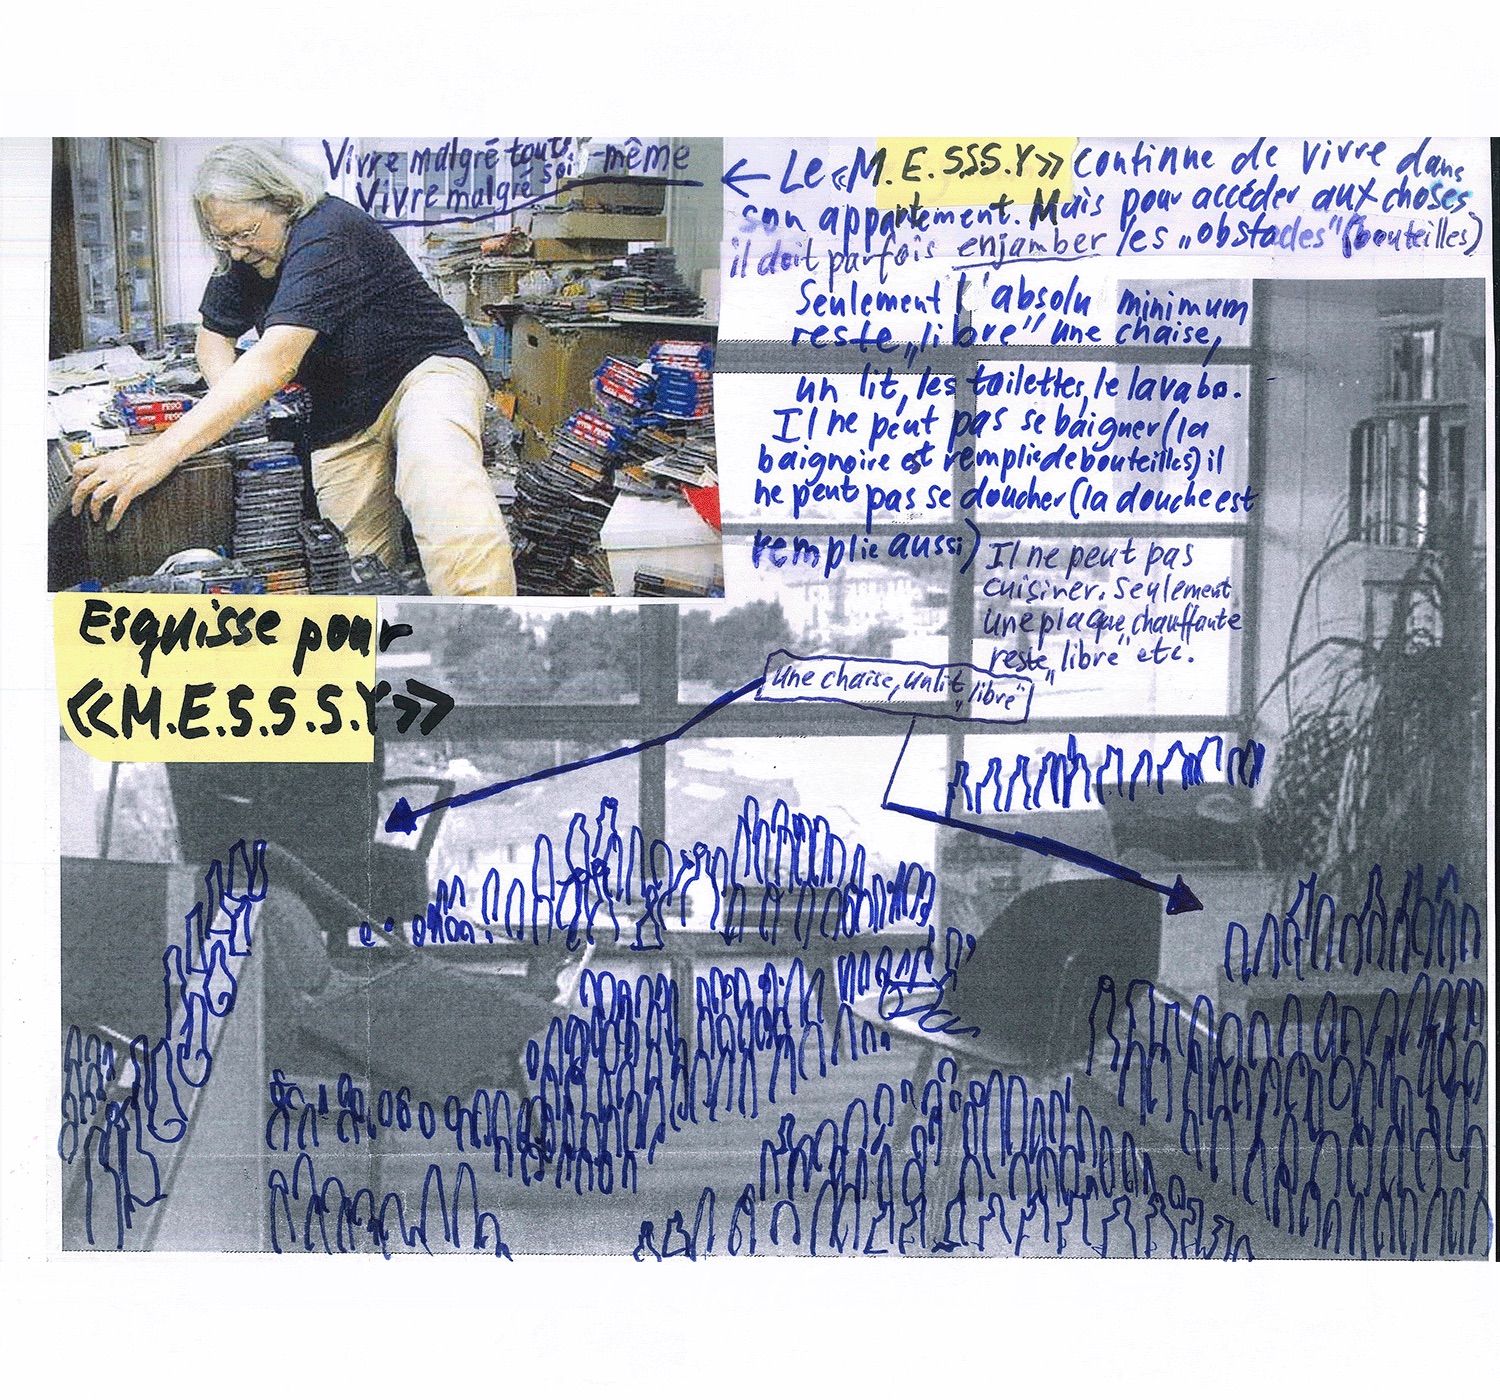 Vivre malgré tout,
Vivre malgré soi-même
← Le «M.E.SSS.Y» continue de vivre dans
son appartement. Mais pour accéder aux choses
il doit parfois enjamber les „obstacles" (bouteilles)
Seulement l'absolu minimum
reste „libre" une chaise,
un lit, les toilettes, le lavabo.
Il ne peut pas se baigner (la
baignoire est remplie de bouteilles) il
ne peut pas se doucher (la douche est
remplie aussi)
Il ne peut pas
cuisiner. Seulement
une plaque chauffante
reste „libre" etc.
Esquisse pour
«M.E.S.S.S.Y»
Une chaise, un lit „libre"